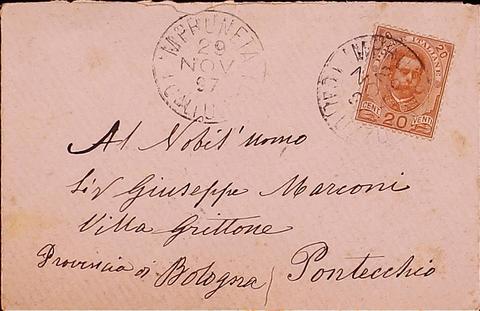 IMPRUNETA
29
NOV
97
POSTE ITALIANE
20
CENT. 20 VENTI
Al Nobil' uomo
Sig Giuseppe Marconi
Villa Grittone
Provincia di Bologna Pontecchio